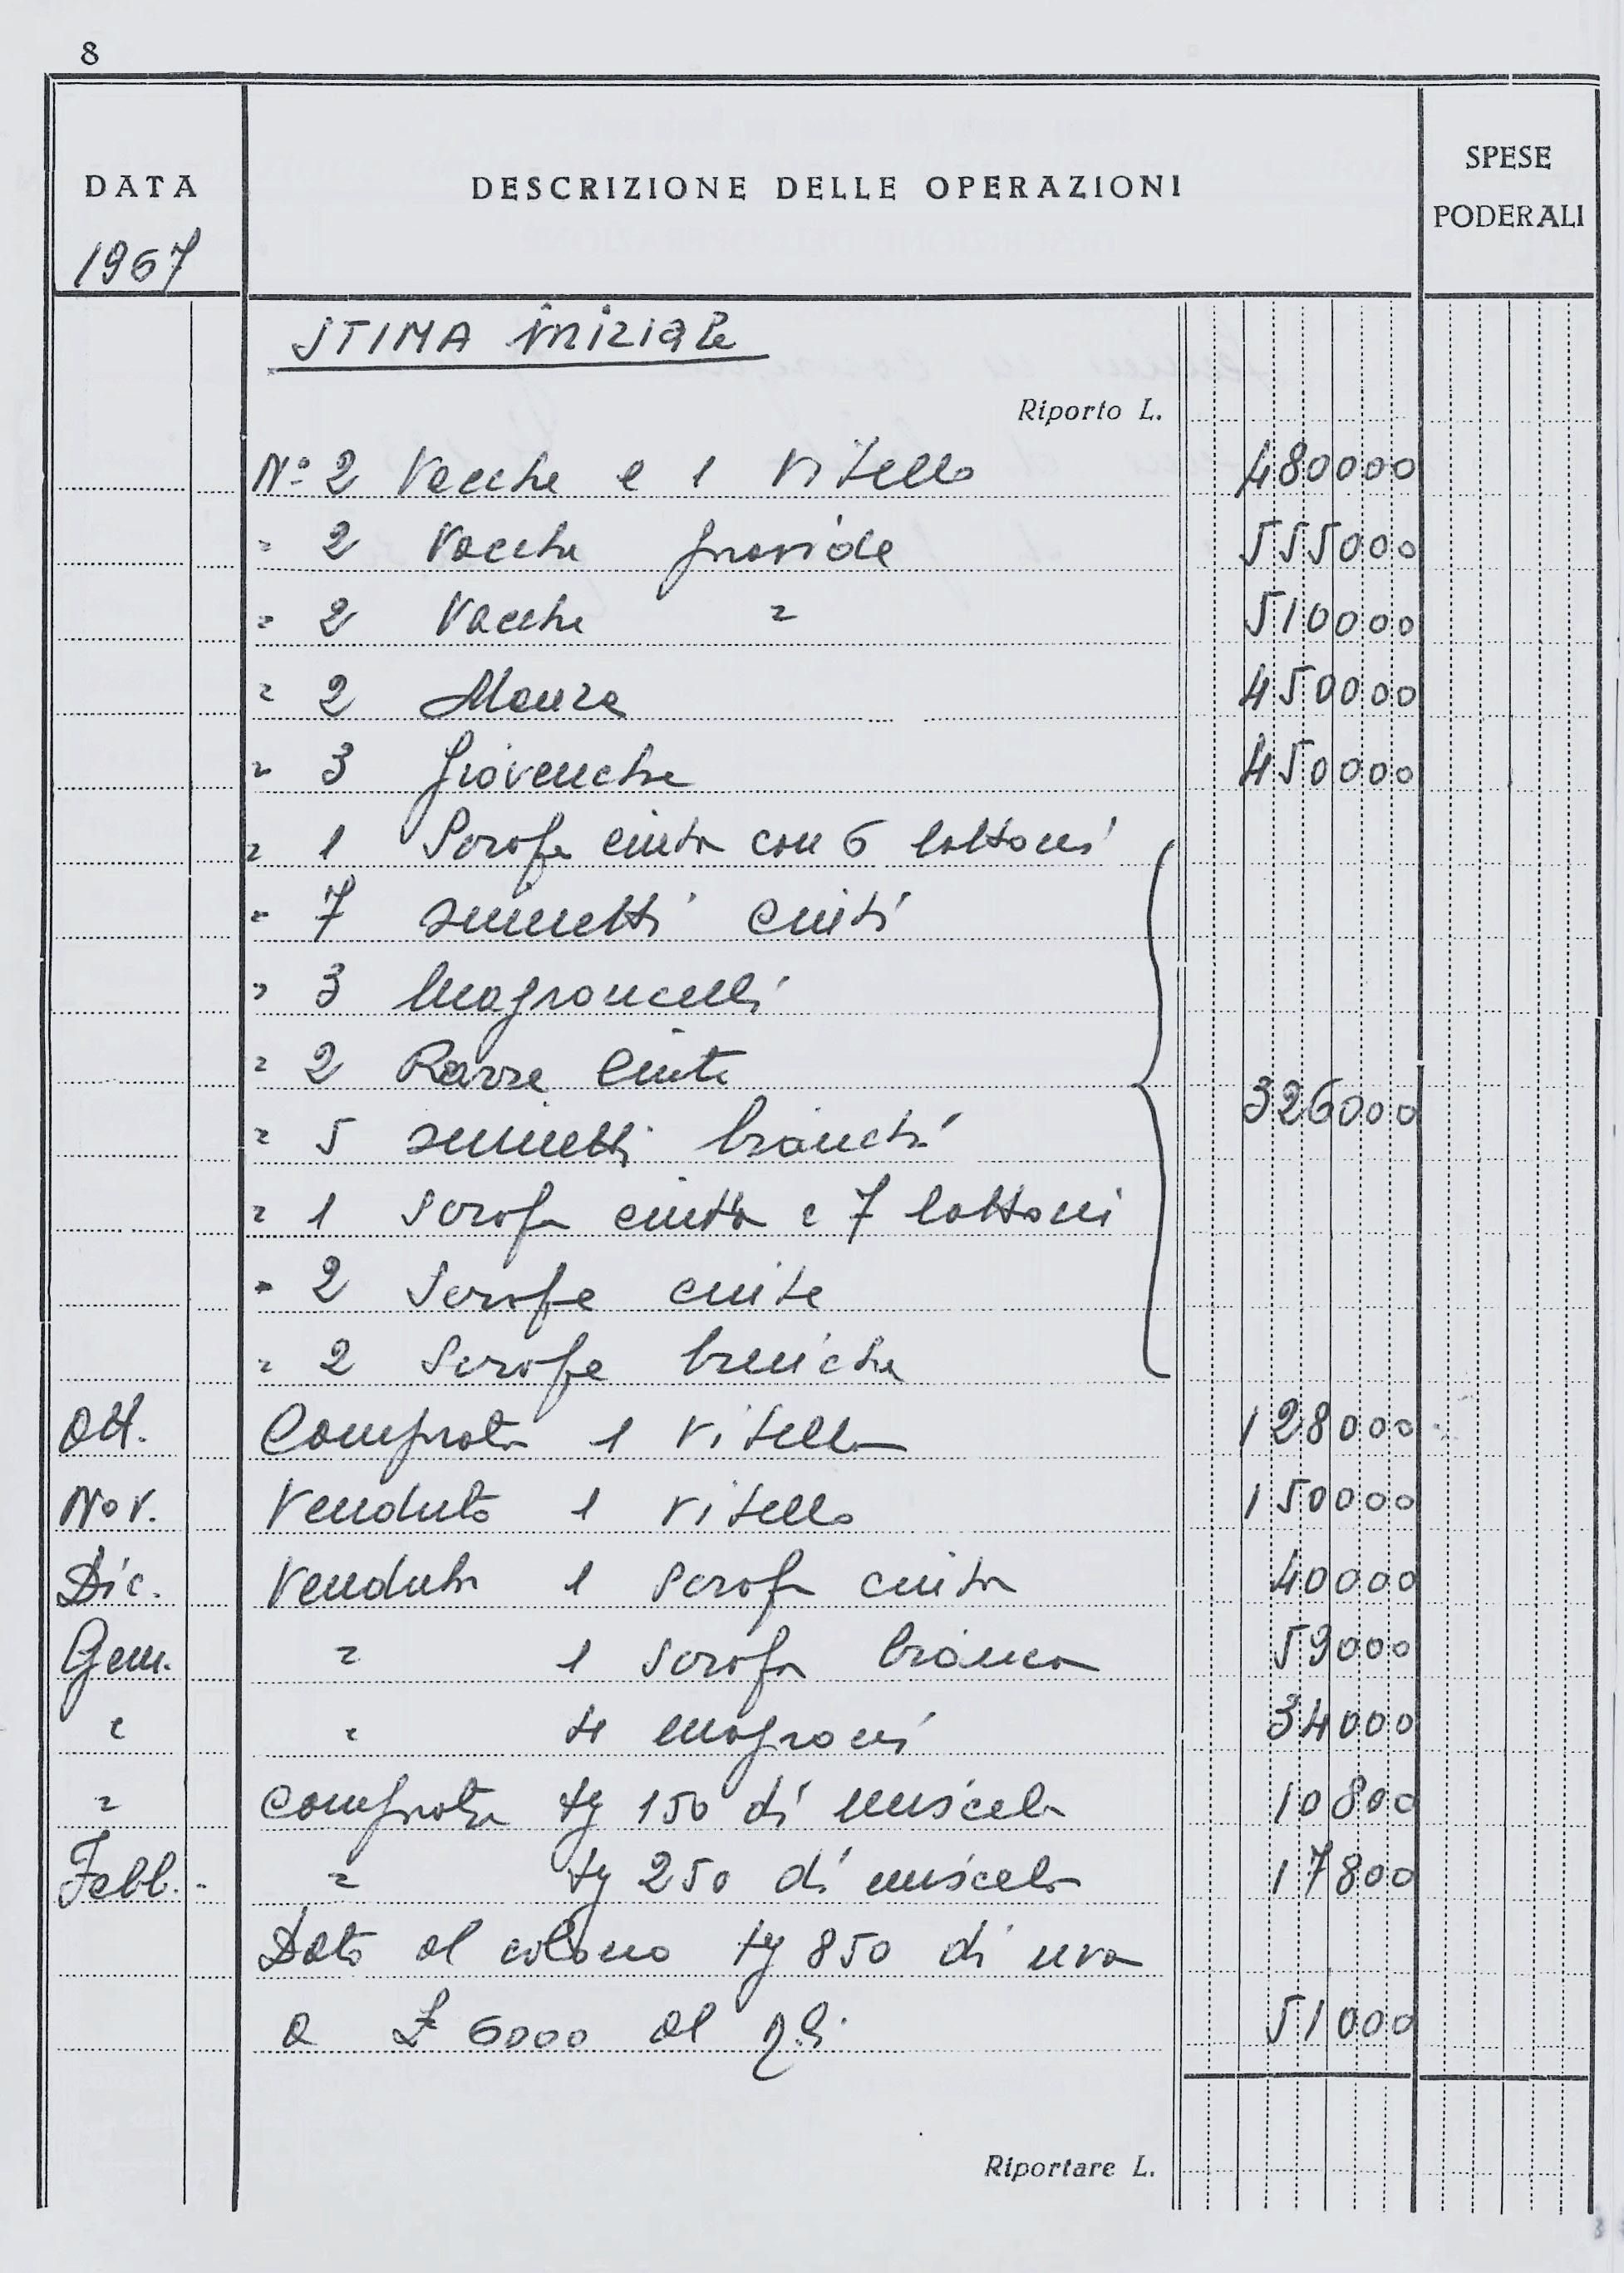 8
DATA
DESCRIZIONE DELLE OPERAZIONI
SPESE PODERALI
1967
STIMA iniziale
Riporto L.
N° 2 Vacche e 1 Vitello 480000
" 2 Vacche gravide 555000
" 2 Vacche " 510000
" 2 Manze 450000
" 3 Giovenche 450000
" 1 Scrofa cinta con 6 lattoni
" 7 suinetti cinti
" 3 magroncelli
" 2 cinte
" 5 suinetti bianchi
326000
" 1 Scrofa cinta e 7 lattoni
" 2 Scrofe cinte
" 2 Scrofe bianche
Ott. Comprato 1 vitello 128000
Nov. Venduto 1 vitello 150000
Dic. Venduta 1 scrofa cinta 40000
Genn. " 1 scrofa bianca 59000
" " 4 magroni 34000
" Comprato Kg 150 di miscela 10800
Febb. " Kg 250 di miscela 17800
Dato al colono Kg 850 di uva
a £ 6000 al q.li 51000
Riportare L.